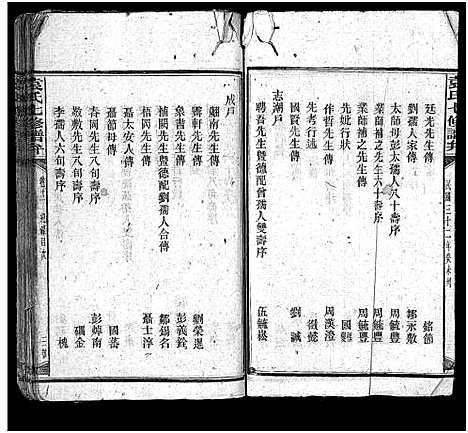 袁氏七修譜弁
民國三十二年癸未刊
廷光先生傳 銘節
劉孺人家傳 鄒永敷
太師母彭太孺人八十壽序 周毓豐
業師補之先生六十壽序 周毓豐
業師補之先生傳 周毓豐
先妣行狀 國
作哲先生傳 周漢澄
先考行述
國賢先生傳 劉誠
志潮戶
聘吾先生暨德配曾孺人雙壽序 伍毓崧
成戶
翩南先生傳 劉榮選
雲軒先生傳 彭義銓
象書先生傳 鄒錫名
楠岡先生暨德配劉孺人合傳
梧岡先生傳 聶士淳
聶太安人傳
聶節母傳 國蕃
春岡先生八旬壽序 彭焯南
敷敷先生六旬壽序 礪金
李孺人六旬壽序 槐
袁氏七修譜弁